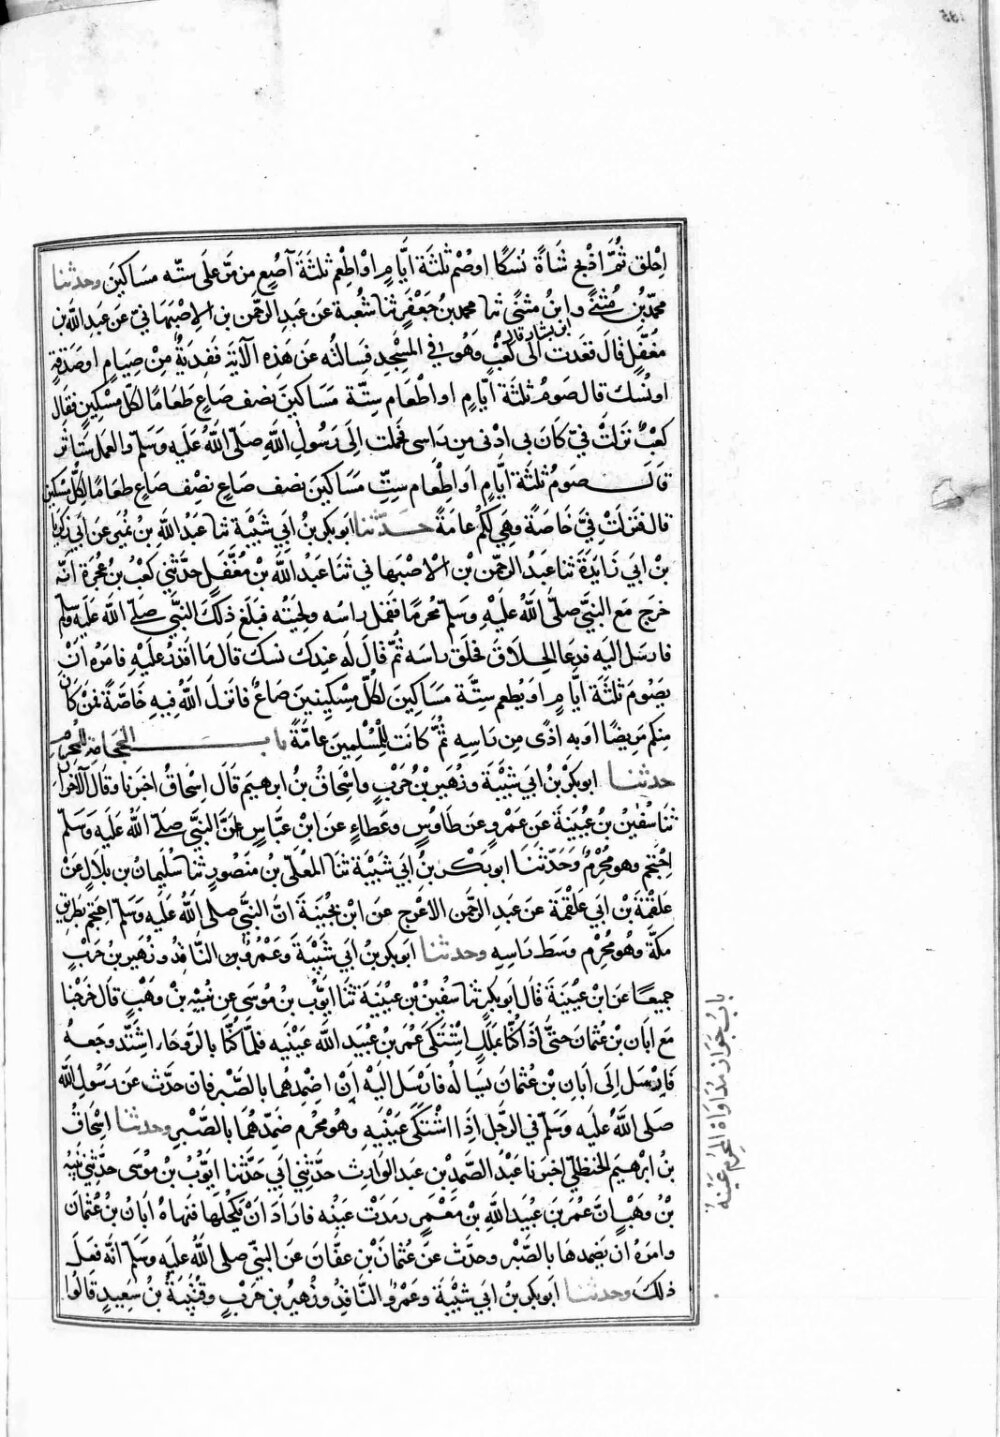 احلق ثُمَّ اذْبَحْ شَاةً نُسُكًا اوصُمْ ثلثَةَ ايَّامٍ اوْ اطْعِم ثلثَةَ آصُعٍ من تمر عَلَى ستّه مَسَاكينَ وحدثنا
محمّد بْن مُثَنَّى وابْنُ بشار قال ابن مثنى ثنا محمد بن جَعْفَرٍ ثنا شُعبة عَن عَبدِ الرحمن بن الاصْبَهَانيّ عَن عَبدِ اللَّه بن
مَعْقَلٍ قَالَ قعَدت الَى كَعْبٍ وَهُو في المسْجِدِ فسَالتُه عَن هَذِهِ الْآيَةِ فَفِديَةٌ مِنْ صِيَامٍ اوصَدَقةٍ
اونُسك قال صَومُ ثلثَة ايَّامٍ اواطعَام ستّة مَسَاكينَ نصف صَاعٍ طَعَامًا لكلّ مسْكِينٍ فقال
كَعْبٌ نزلَتْ فيّ كَانَ بي اذًى من رَاسى فحُملت الى رَسُولِ اللَّهِ صَلّى اللَّهُ عَلَيهِ وَسَلّم والقمل يتناثر
قَالَ صَومُ ثلثَة ايَّامٍ اَو اِطْعَام ستّ مَسَاكينَ نصف صَاعٍ نصْفِ صَاعٍ طعَامًا لكلّ مسْكين
قال فنزلَتْ فيّ خَاصّةً وهِيَ لكُم عامّةً حَدَّثنا ابوبكر بنُ اَبي شَيْبَة ثنا عَبْدُ اللَّهِ بن نُمَير عَن زكريا
بْن ابي زَايدَةَ ثنا عَبْدُ الرحمن بن الاصْبَهاني ثنَا عَبدُ اللَّه بْن مَعْقَلٍ حدّثَني كعْبُ بن عُجرَة انّه
خَرَج مَع النبيّ صلّى اللَّهُ عَلَيْهِ وَسَلّم مُحرمًا فقمل راسُه ولحْيَتُه فبلغ ذلِكَ النَّبيّ صلى اللَّه عَلَيهِ وسلم
فارسَل اليَه فدعَا الحَلاقَ فحلَق راسَه ثُمَّ قَالَ لَه عِندكَ نسك قَالَ مَا اقدر عَلَيْهِ فامَرَهُ اَنْ
يَصُومَ ثلثَةَ ايّامٍ اوْ يُطعم ستّة مَسَاكينَ لكُلّ مسْكينِينَ صَاعٌ فانزَل اللَّهُ فِيهِ خَاصّةً فمَنْ كَان
منكُم مريضًا اوبه اذًى مِن رَاسِهِ ثُمّ كانَت للمُسْلِمِينَ عامّةً باب الحجَامةِ للمُحْرِم
حدثنا ابوبَكر بْنُ ابي شَيْبَةَ وزُهَير بْن حَرْبٍ واسْحَاقُ بْنُ ابرهيم قَالَ اِسْحَاقُ اخبَرنا وقَالَ الآخَرانِ
ثنَا سُفيٰنُ بْن عُيَيْنَةَ عَن عَمْرٍو عَن طَاوُسٍ وعَطَاءٍ عَن ابْن عَبَّاسٍ اَنّ النَّبيّ صَلّى اللَّه عَلَيهِ وَسَلّم
احْتجَم وهُو مُحْرِمٌ وَحَدّثنَا ابوبَكْر بْنُ اَبي شَيْبَةَ ثنا المُعَلّى بْن مَنصُورٍ ثنا سُلَيمانُ بن بلَالٍ عَن
عَلقَمَةَ بْن ابي عَلْقَمة عَن عَبدِ الرحمن الاَعْرجِ عَن ابْن بُحَينَةَ انَّ النبيّ صلى اللَّهُ عَلَيهِ وَسَلّم احتَجَم بطَرِيق
مكّةَ وهُو مُحْرِم وسَط رَاسِه وحدثنا ابوبكر بنُ اَبي شَيْبَةَ وعَمْرٌو النَّاقدُ وزُهَير بن حَرْبٍ
جميعًا عَن ابْن عُيَيْنَةَ قَالَ ابوبكرٍ ثنا سفيٰنُ بْن عُيَيْنَةَ ثنَا ايّوب بْن مُوسَى عن نُبَيهِ بْن وَهْبٍ قال خَرَجْنا
مَع ابَان بْن عُثمَانَ حتّى اذَا كُنّا بمَلَلٍ اشْتكَى عُمَر بْن عُبَيدِ اللَّه عَينَيهِ فلمّا كُنّا بالرّوحَاء اشتَدّ وَجعهُ
فارْسَل الى ابَان بْن عُثمانَ يسَاله فارسَل اليْه اَنْ اضْمِدْهُما بالصَّبر فان عُثْمٰن حدّث عَن رَسُولِ اللَّه
صَلى اللَّهُ عَلَيهِ وَسَلّم في الرّجُل اذا اشْتَكَى عَينَيهِ وهُو مُحْرِم ضَمّدَهُمَا بالصَّبْرِ وحدثنا اسْحَاقُ
بنُ ابرْهيمَ الحَنظليّ اخبَرنا عَبْدُ الصَّمَدِ بْن عَبدِ الوَارِث حدَّثَني اَبي حَدَّثنا ايّوبُ بْن مُوسَى حدّثَني نُبَيهُ
بْنُ وهْبٍ انّ عُمَر بن عُبَيدِ اللَّهِ بْن مَعْمَرٍ رمِدَتْ عَينُه فارَادَ اَن يكحُلَها فنَهاهُ ابَانُ بْن عُثمَان
وامَرَهُ ان يضَمِدَهَا بالصَّبْر وحدَّث عَن عُثمَانَ بْن عفّانَ عَن النبيّ صلى اللَّهُ عليهِ وسَلّم انّه فعَل
ذلكَ وحدثنا ابوبكر بْنُ ابي شَيْبَةَ وعَمْرٌو النّاقدُ وزُهَيرُ بن حَرْبٍ وقُتَيْبَةُ بْنُ سَعِيدٍ قَالُوا
بابُ جوَاز مُدَاوَاة المحْرِم عَيْنَيْه